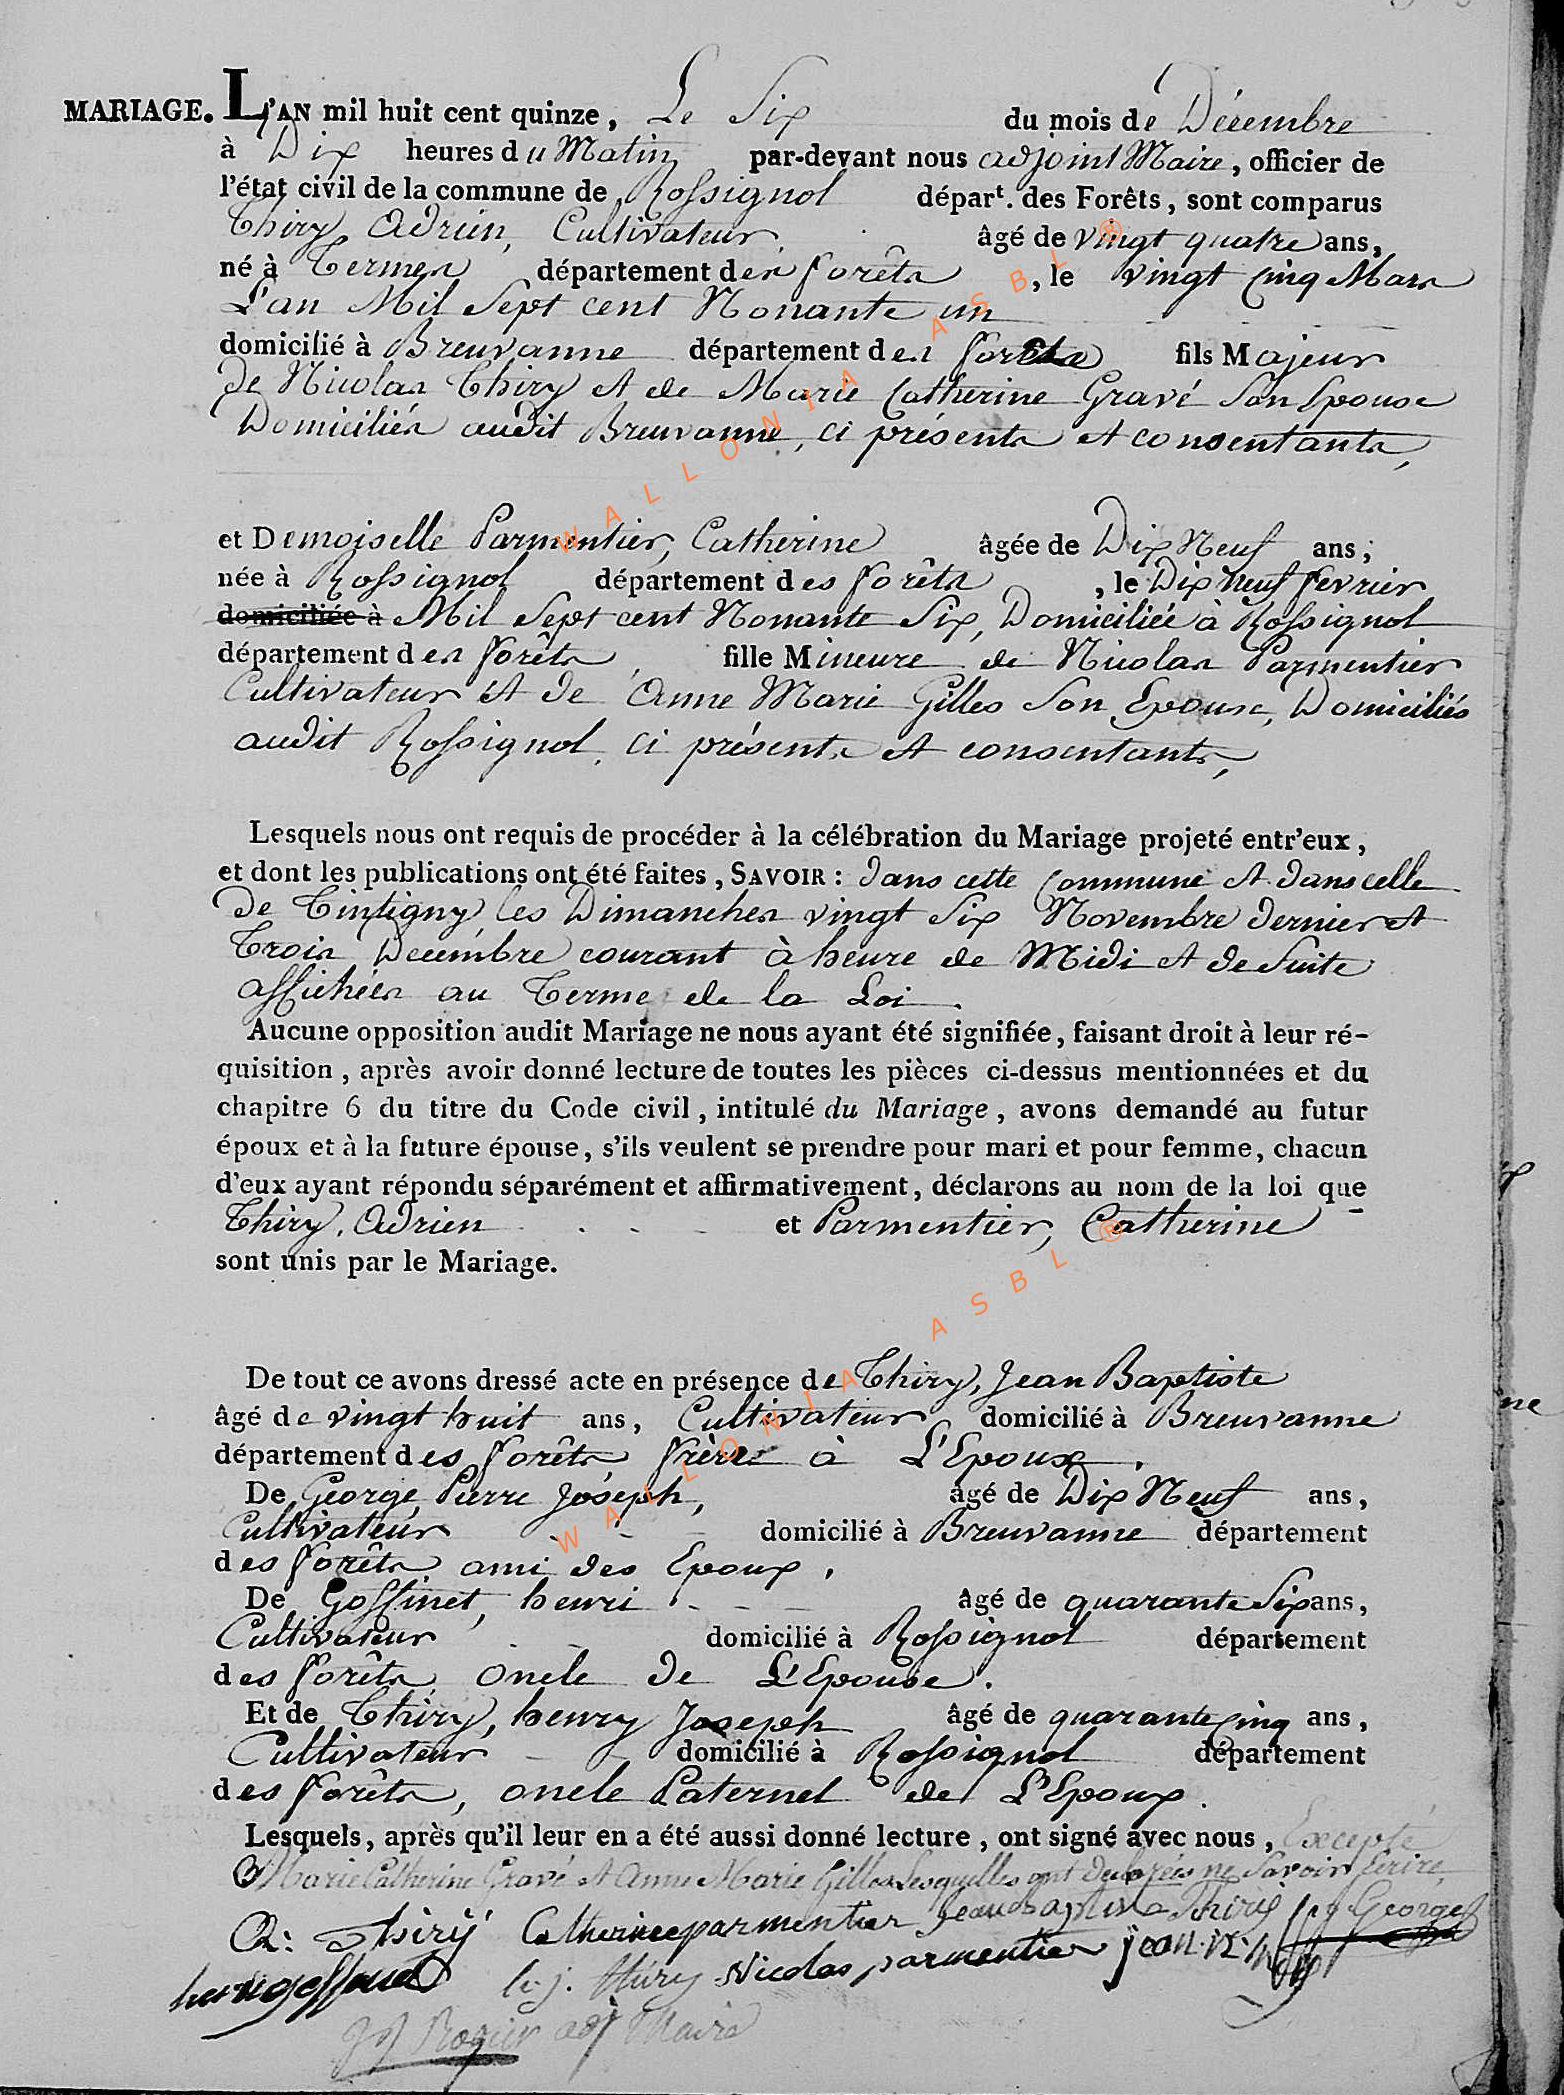 MARIAGE. L'AN mil huit cent quinze, Le Six du mois de Décembre
à Dix heures du Matin par-devant nous adjoint Maire, officier de
l'état civil de la commune de Rossignol départ. des Forêts, sont comparus
Thiry Adrien, Cultivateur âgé de vingt quatre ans,
né à Termes département des forêts, le vingt Cinq Mars
L'an Mil Sept cent Nonante un
domicilié à Breuvanne département des forêts fils Majeur
de Nicolas Thiry et de Marie Catherine Gravé Son Epouse
Domiciliés audit Breuvanne, ci présents et consentants,
et Demoiselle Parmentier, Catherine âgée de Dix Neuf ans;
née à Rossignol département des forêts, le Dix neuf fevrier
domiciliée à Mil Sept cent Nonante Six, Domiciliée à Rossignol
département des forêts fille Mineure de Nicolas Parmentier
Cultivateur et de Anne Marie Gilles Son Epouse, Domiciliés
audit Rossignol, ci présents et consentants,
Lesquels nous ont requis de procéder à la célébration du Mariage projeté entr'eux,
et dont les publications ont été faites, SAVOIR: dans cette Commune et dans celle
de Tintigny les Dimanches vingt Six Novembre dernier et
Trois Decembre courant à heure de Midi et de Suite
affichées au Terme de la Loi.
Aucune opposition audit Mariage ne nous ayant été signifiée, faisant droit à leur ré-
quisition, après avoir donné lecture de toutes les pièces ci-dessus mentionnées et du
chapitre 6 du titre du Code civil, intitulé du Mariage, avons demandé au futur
époux et à la future épouse, s'ils veulent se prendre pour mari et pour femme, chacun
d'eux ayant répondu séparément et affirmativement, déclarons au nom de la loi que
Thiry, Adrien et Parmentier, Catherine
sont unis par le Mariage.
De tout ce avons dressé acte en présence de Thiry, Jean Baptiste
âgé de vingt huit ans, Cultivateur domicilié à Breuvanne
département des forêts frère à L'Epoux.
De George Pierre Joseph, âgé de Dix Neuf ans,
Cultivateur domicilié à Breuvanne département
des forêts ami des Epoux.
De Goffinet, henri âgé de quarante Six ans,
Cultivateur domicilié à Rossignol département
des forêts oncle de L'Epouse.
Et de Thiry, henry Joseph âgé de quarante Cinq ans,
Cultivateur domicilié à Rossignol département
des forêts, oncle Paternel de L'Epoux.
Lesquels, après qu'il leur en a été aussi donné lecture, ont signé avec nous, Excepté
Marie Catherine Gravé et Anne Marie Gilles Lesquelles ont Declarées ne Savoir Ecrire,
a: thirÿ Catherinee parmentier jean baptiste Thiry p j George
henri goffinet h. j. thiry Nicolas parmentier
Rogier adj Maire
WALLONIA ASBL ®
WALLONIA ASBL ®